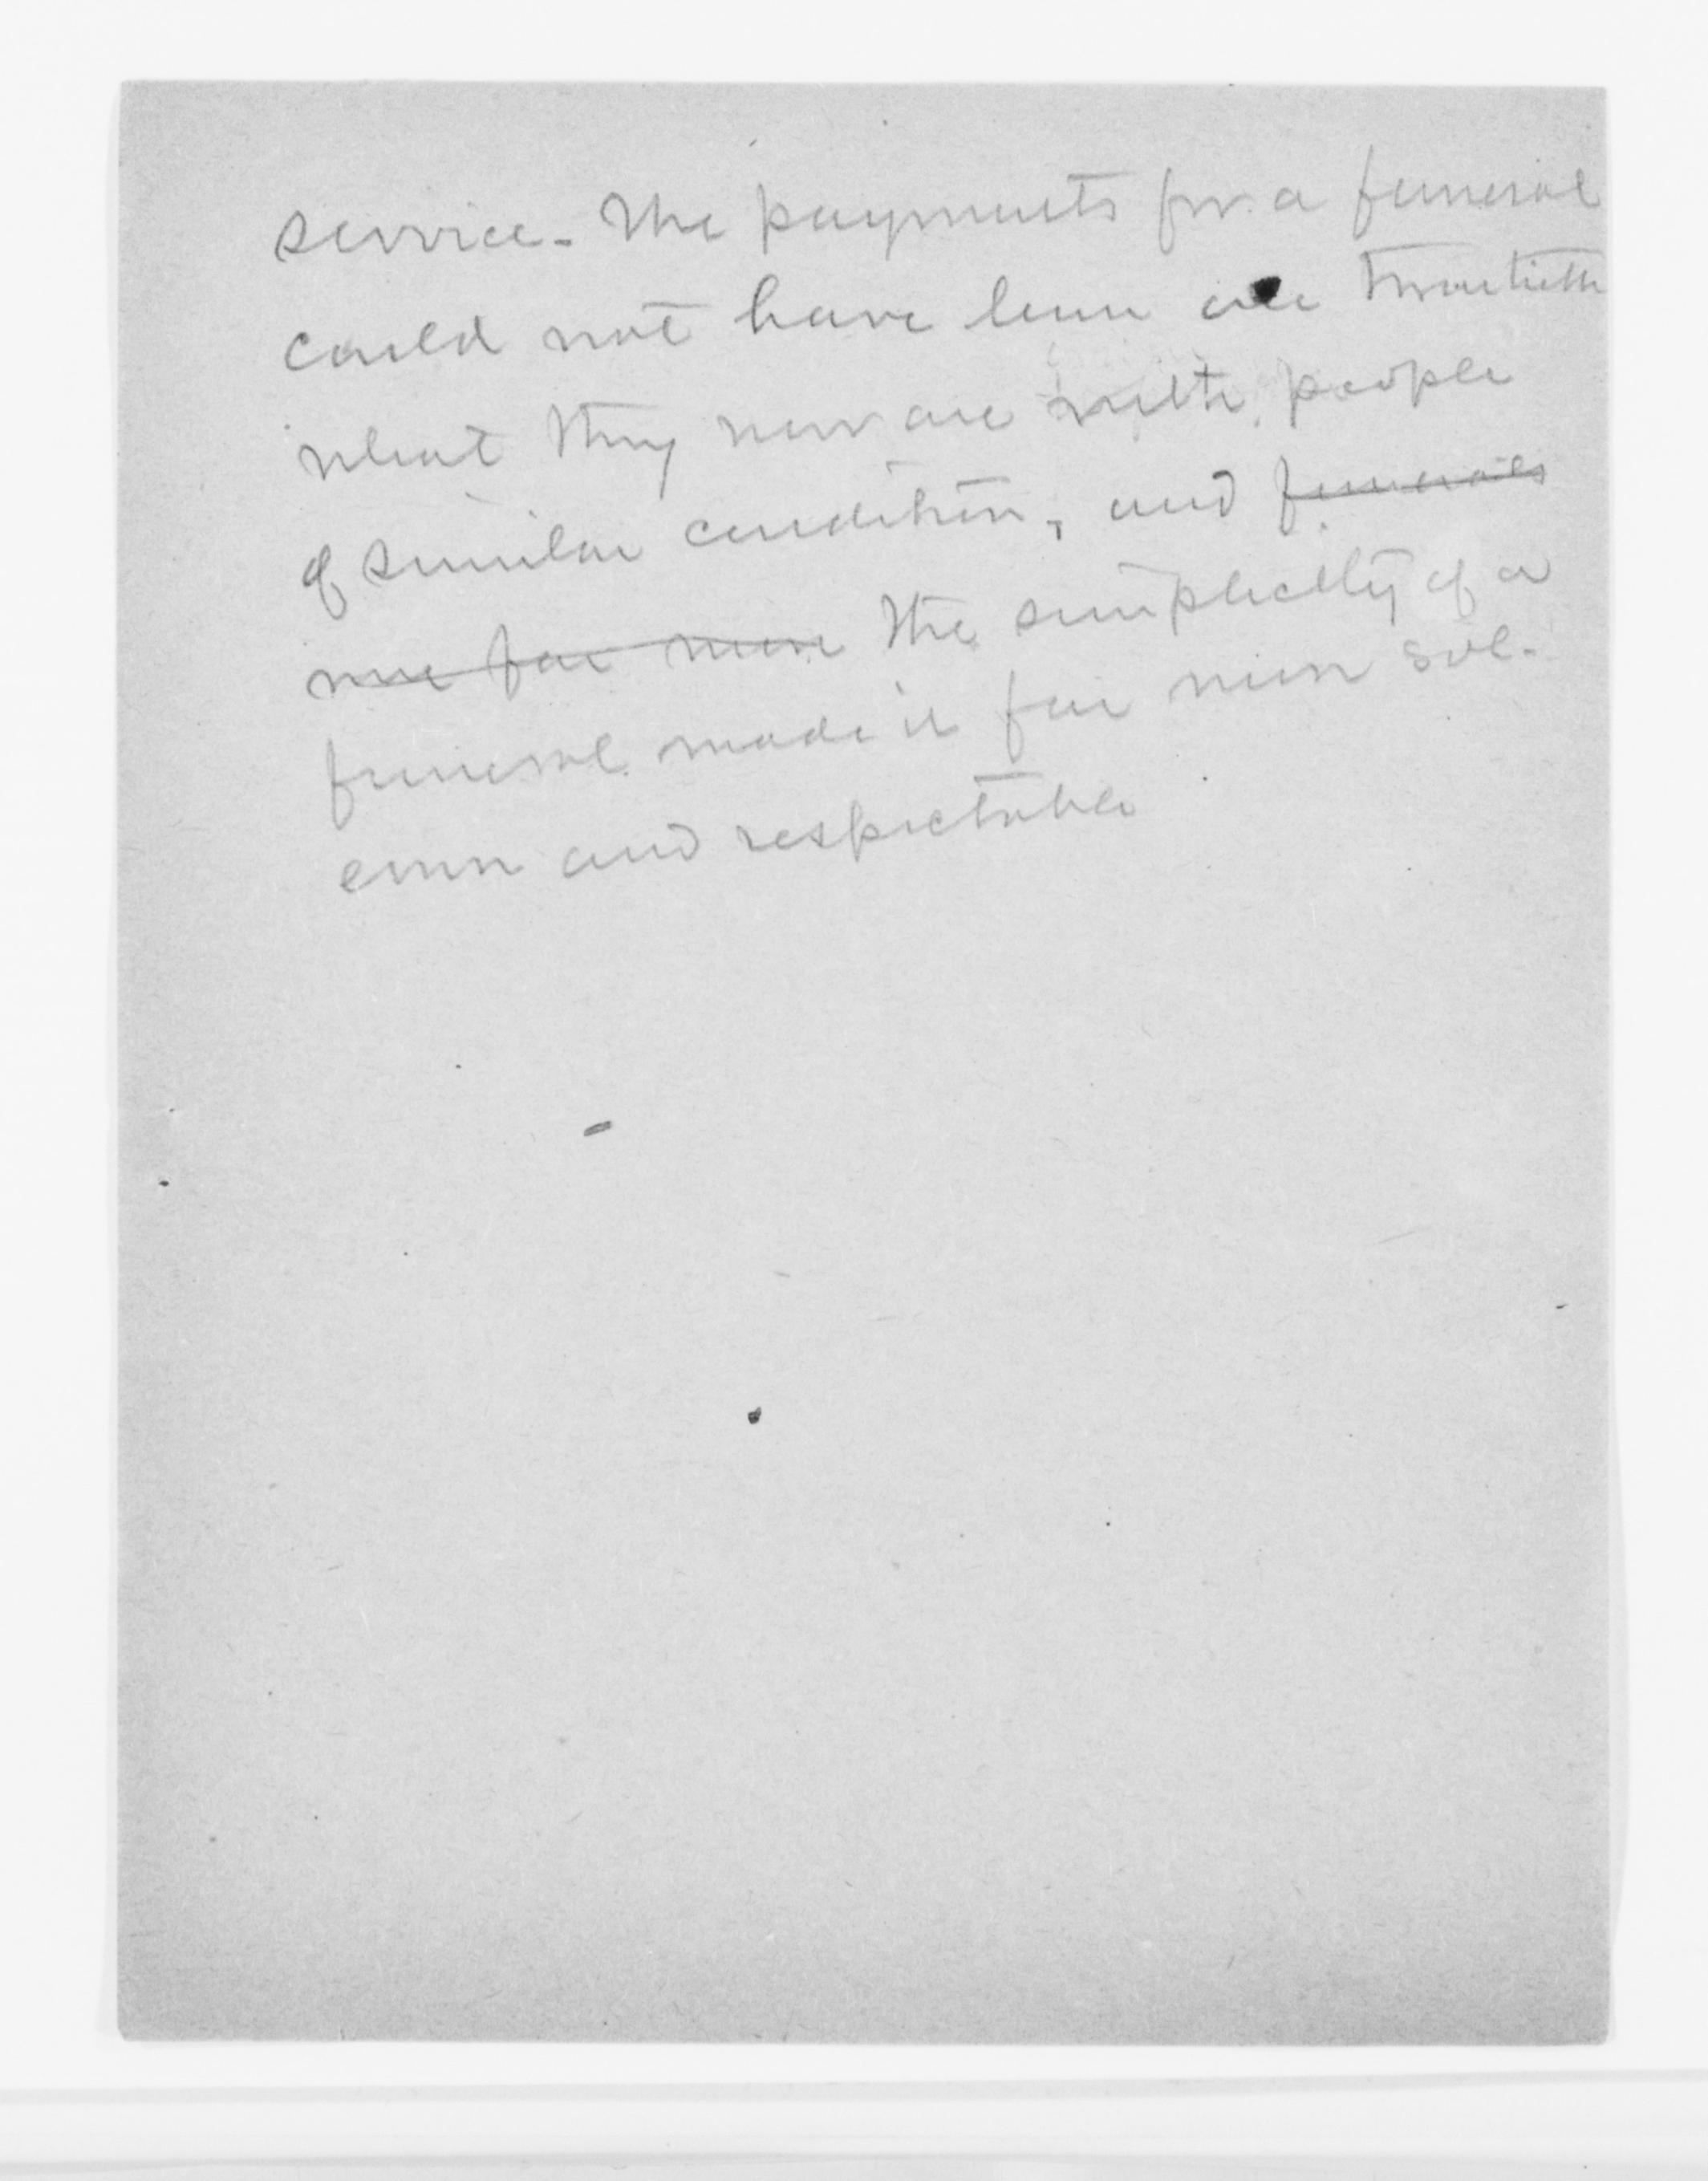 service. The payments for a funeral
could not have been one twentieth
what they now are with people
of similar condition, and funerals
were far more the simplicity of a
funeral made it far more sol-
emn and respectable